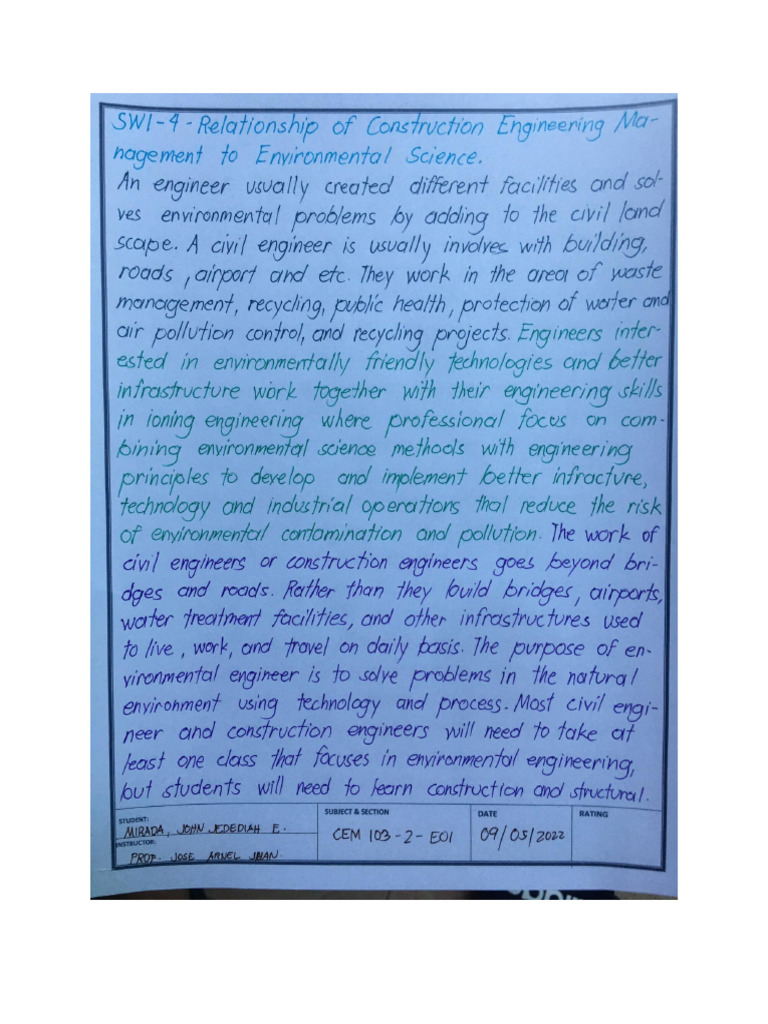 SW1-4-Relationship of Construction Engineering Ma-
nagement to Environmental Science.
An engineer usually created different facilities and sol-
ves environmental problems by adding to the civil land
scape. A civil engineer is usually involves with building,
roads, airport and etc. They work in the area of waste
management, recycling, public health, protection of water and
air pollution control, and recycling projects. Engineers inter-
ested in environmentally friendly technologies and better
infrastructure work together with their engineering skills
in ioning engineering where professional focus on com-
bining environmental science methods with engineering
principles to develop and implement better infracture,
technology and industrial operations that reduce the risk
of environmental contamination and pollution. The work of
civil engineers or construction engineers goes beyond bri-
dges and roads. Rather than they build bridges, airports,
water treatment facilities, and other infrastructures used
to live, work, and travel on daily basis. The purpose of en-
vironmental engineer is to solve problems in the natural
environment using technology and process. Most civil engi-
neer and construction engineers will need to take at
least one class that focuses in environmental engineering,
but students will need to learn construction and structural.
STUDENT:
MIRADA, JOHN JEDEDIAH E.
INSTRUCTOR:
PROF. JOSE ARNEL
SUBJECT & SECTION
CEM 103-2-E01
DATE
09/05/2022
RATING